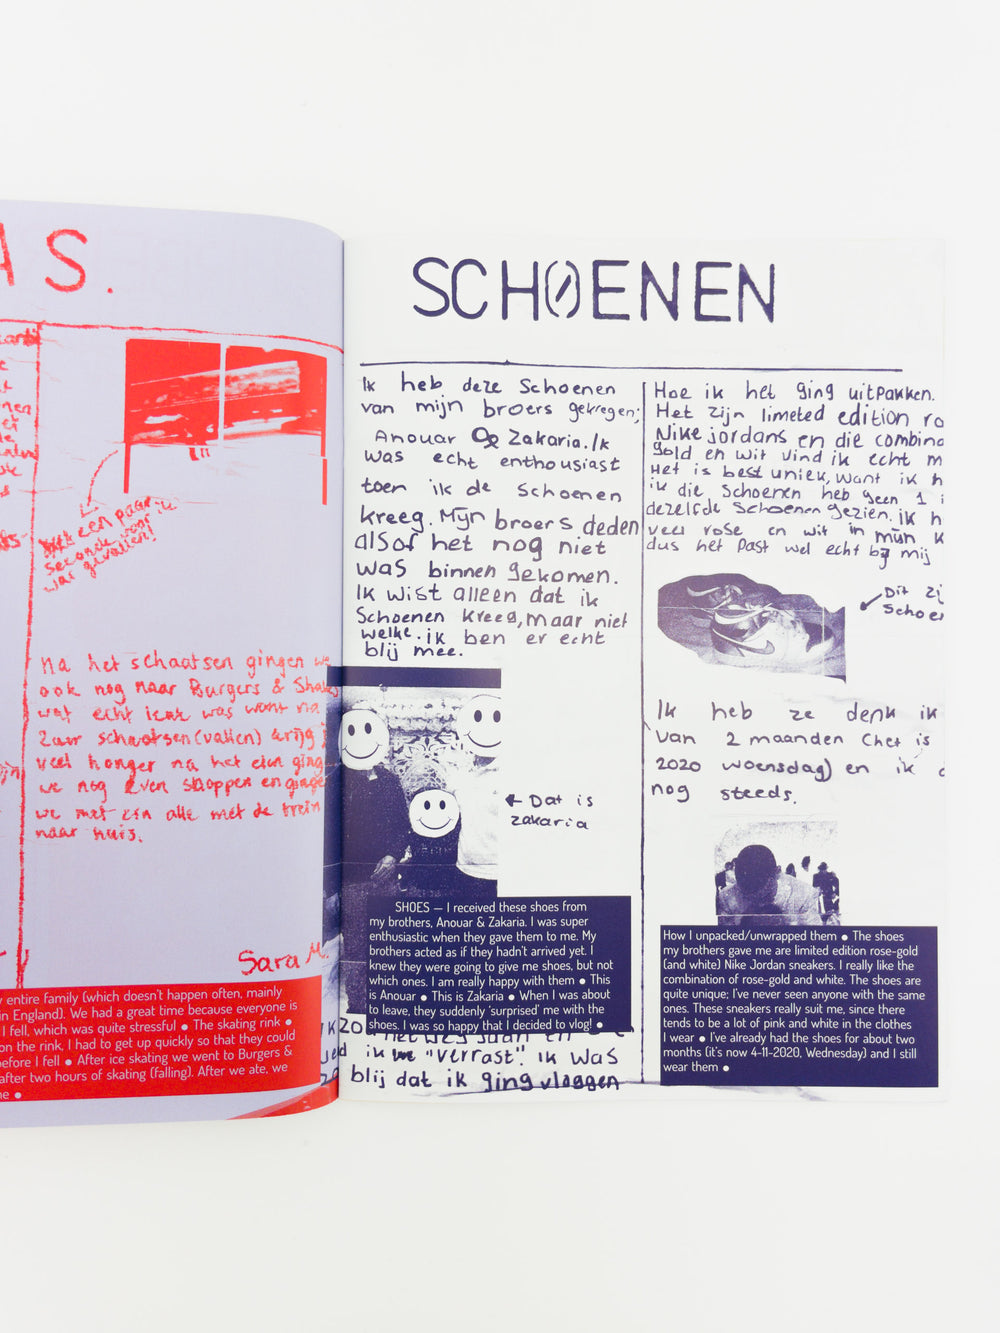 A S.
een paar
seconde voor
was gevallen!
Na het schaatsen gingen we
ook nog naar Burgers & Shakes
wat echt leuk was want na
2 uur schaatsen (vallen) krijg je
veel honger na het eten ginge
we nog even shoppen en ginge
we met z'n alle met de trein
naar huis.
Sara M.
y entire family (which doesn't happen often, mainly
in England). We had a great time because everyone is
I fell, which was quite stressful ● The skating rink ●
on the rink, I had to get up quickly so that they could
before I fell ● After ice skating we went to Burgers &
after two hours of skating (falling). After we ate, we
me ●
SCHOENEN
Ik heb deze Schoenen
van mijn broers gekregen;
Anouar & Zakaria. Ik
was echt enthousiast
toen ik de schoenen
kreeg. Mijn broers deden
alsof het nog niet
was binnen gekomen.
Ik wist alleen dat ik
Schoenen kreeg, maar niet
welke. ik ben er echt
blij mee.
← Dat is
zakaria
SHOES — I received these shoes from
my brothers, Anouar & Zakaria. I was super
enthusiastic when they gave them to me. My
brothers acted as if they hadn't arrived yet. I
knew they were going to give me shoes, but not
which ones. I am really happy with them ● This
is Anouar ● This is Zakaria ● When I was about
to leave, they suddenly 'surprised' me with the
shoes. I was so happy that I decided to vlog! ●
ik "verrast". Ik was
blij dat ik ging vloggen
Hoe ik het ging uitpakken.
Het zijn limeted edition ro
Nike jordans en die combina
gold en wit vind ik echt m
Het is best uniek, want ik h
ik die Schoenen heb geen 1 i
dezelfde Schoenen gezien. ik h
veel rose en wit in mijn k
dus het past wel echt bij mij
Dit zij
Schoe
Ik heb ze denk ik
van 2 maanden (het is
2020 woensdag) en ik
nog steeds.
How I unpacked/unwrapped them ● The shoes
my brothers gave me are limited edition rose-gold
(and white) Nike Jordan sneakers. I really like the
combination of rose-gold and white. The shoes are
quite unique; I've never seen anyone with the same
ones. These sneakers really suit me, since there
tends to be a lot of pink and white in the clothes
I wear ● I've already had the shoes for about two
months (it's now 4-11-2020, Wednesday) and I still
wear them ●